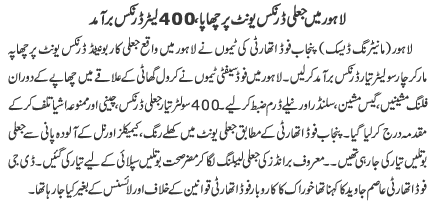 لاہور میں جعلی ڈرنکس یونٹ پر چھاپا، 400 لیٹر ڈرنکس برآمد
لاہور (مانیٹرنگ ڈیسک) پنجاب فوڈ اتھارٹی کی ٹیموں نے لاہور میں واقع جعلی کاربونیٹڈ ڈرنکس یونٹ پر چھاپہ
مار کر چار سو لیٹر تیار ڈرنکس برآمد کر لیں۔ لاہور میں فوڈ سیفٹی ٹیموں نے کرول گھاٹی کے علاقے میں چھاپے کے دوران
فلنگ مشینیں، گیس مشین، سلنڈر اور نیلے ڈرم ضبط کر لیے۔ 400 سو لٹر تیار جعلی ڈرنکس، چینی اور ممنوعہ اشیا تلف کر کے
مقدمہ درج کرلیا گیا۔ پنجاب فوڈ اتھارٹی کے مطابق جعلی یونٹ میں کھلے رنگ، کیمیکلز اور نل کے آلودہ پانی سے جعلی
بوتلیں تیار کی جارہی تھیں۔۔ معروف برانڈز کی جعلی لیبلنگ لگا کر مضر صحت بوتلیں سپلائی کے لیے تیار کی گئیں۔ ڈی جی
فوڈ اتھارٹی عاصم جاوید کا کہنا تھا خوراک کا کاروبار فوڈ اتھارٹی قوانین کے خلاف اور لائسنس کے بغیر کیا جارہا تھا۔